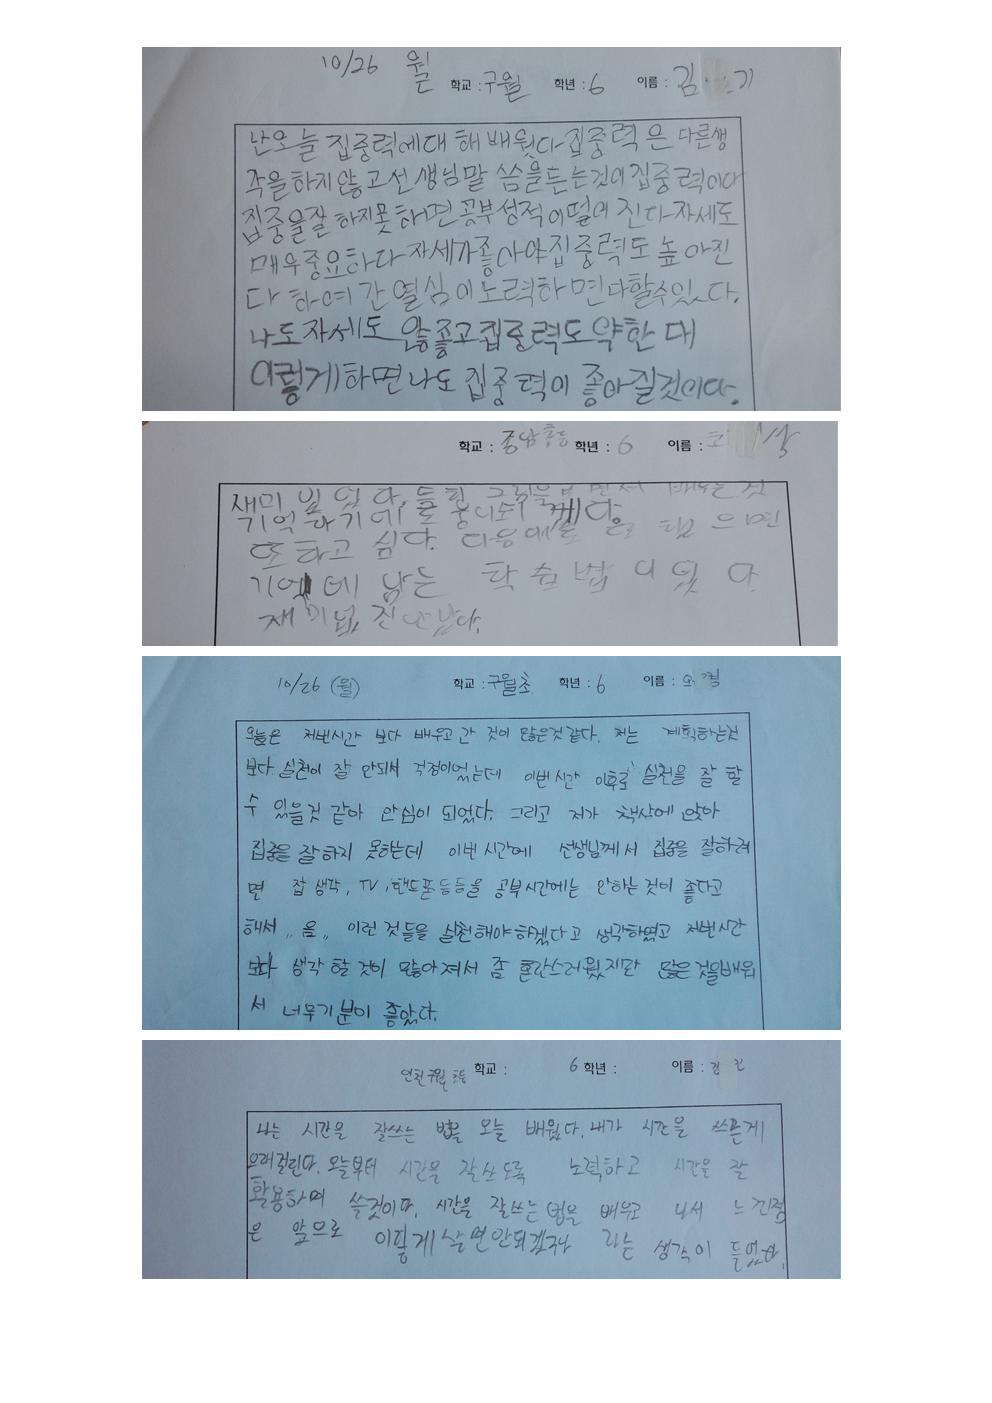 10/26 월 학교 : 구월 학년 : 6 이름 : 김 기
난오늘 집중력에대 해 배웠다 집중력 은 다른생
각을하지않고선생님말 씀을듣는것이집중력이다
집중을잘 하지못 하면 공부성적이떨어 진다 자세도
매우중요하다 자세가좋아야집중력도 높아진
다 하여간 열심 이노력하 면다할수있다.
나도자세도 않좋고집중력도약한 대
이렇게하면나도 집중력이 좋아질것이다.
학교 : 학년 : 6 이름 :
재미 있었다. 그림을
기억하기에도
또 하고 싶다. 다음에도 으면
기억에 남는 학습법 이었 다
재미있
10/26 (월) 학교 : 구월초 학년 : 6 이름 : 오
오늘은 저번시간 보다 배우고 간 것이 많은것 같다. 저는 계획하는것
보다 실천이 잘 안되서 걱정이었는데 이번시간 이후로 실천을 잘 할
수 있을것 같아 안심이 되었다. 그리고 저가 책상에 앉아
집중을 잘하지 못하는데 이번시간에 선생님께서 집중을 잘하려
면 잡생각, TV, 핸드폰등등을 공부시간에는 안하는 것이 좋다고
해서 ,,음,, 이런 것들을 실천해야하겠다고 생각하였고 저번시간
보다 생각 할 것이 많아져서 좀 혼란스러웠지만 많은것을배워
서 너무기분이 좋았다.
인천구월초등 학교 : 6 학년 : 이름 : 김
나는 시간을 잘쓰는 법을 오늘 배웠다. 내가 시간을 쓰는게
오래걸린다. 오늘부터 시간을 잘쓰도록 노력하고 시간을 잘
활용하며 쓸것이다. 시간을 잘쓰는 법을 배우고 나서 느낀점
은 앞으로 이렇게살면안되겠구나 라는 생각이 들었다.